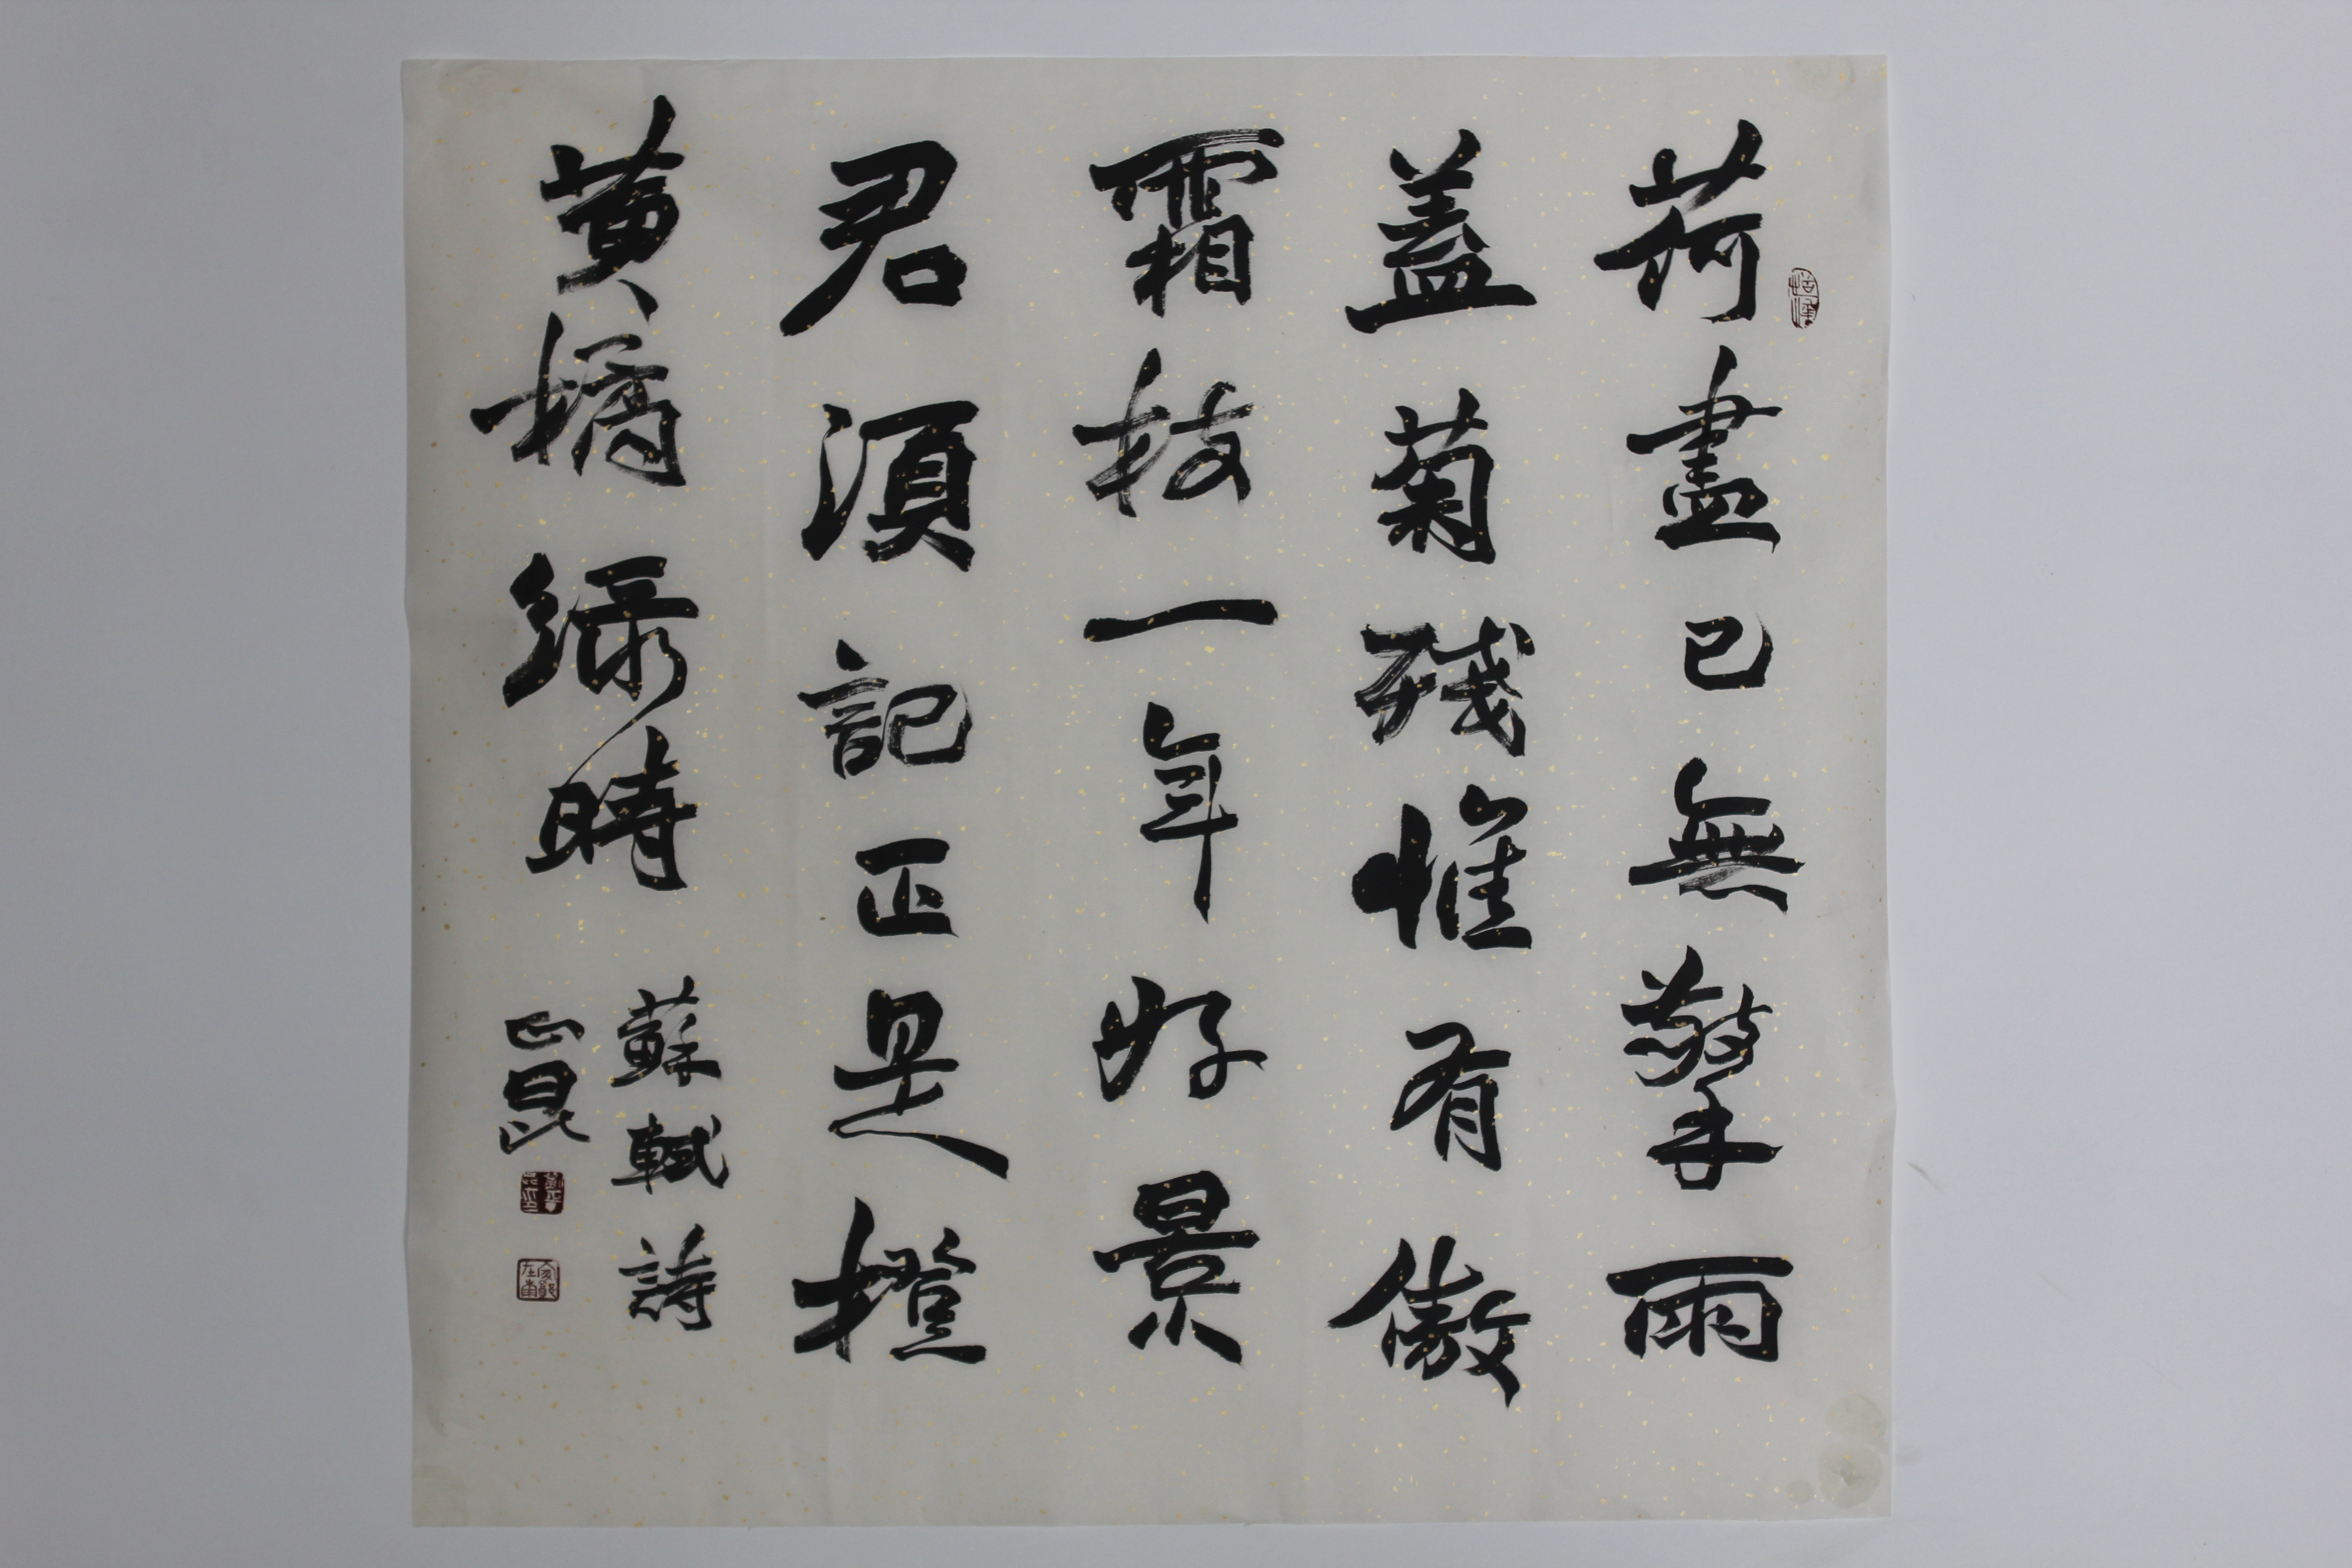 荷盡已無擎雨
蓋菊殘惟有傲
霜枝一年好景
君須記正是橙
黃橘綠時
蘇軾詩
正昆